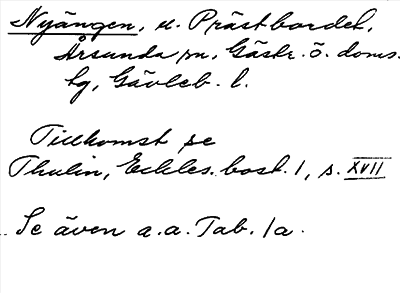 Nyängen, u. Prästbordet,
Årsunda sn, Gästr. ö. doms.
tg, Gävleb. l.
Tillkomst se
Thulin, Eckles. bost. 1, s. XVII
Se även a.a. Tab. 1a.